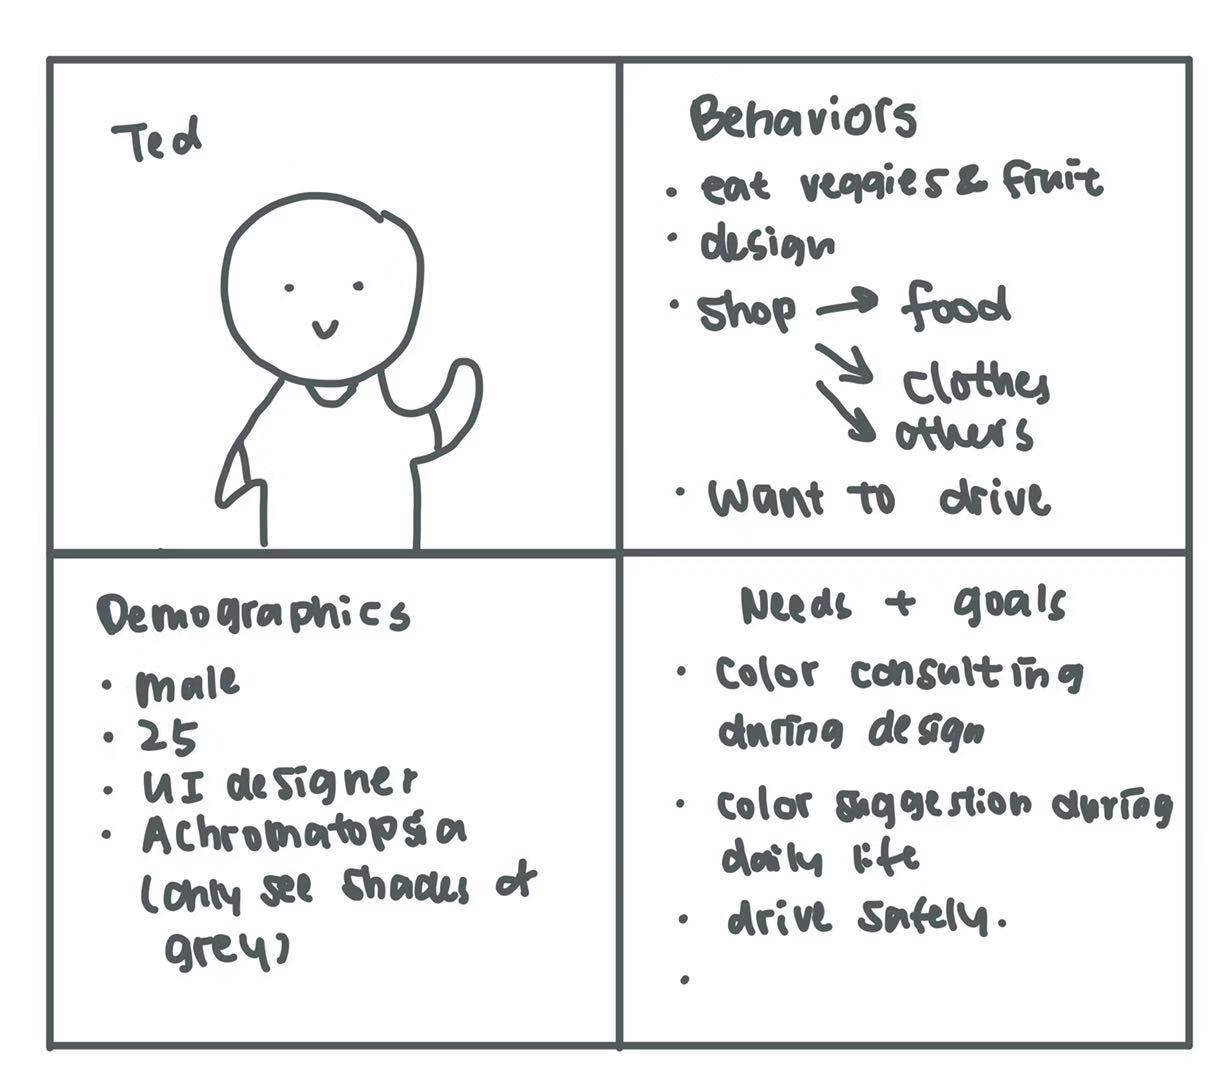 Ted
Behaviors
• eat veggies & fruit
• design
• shop → food
→ clothes
→ others
• want to drive
Demographics
• male
• 25
• UI designer
• Achromatopsia
(only see shades of
grey)
Needs + goals
• color consulting
during design
• color suggestion during
daily life
• drive safely.
•